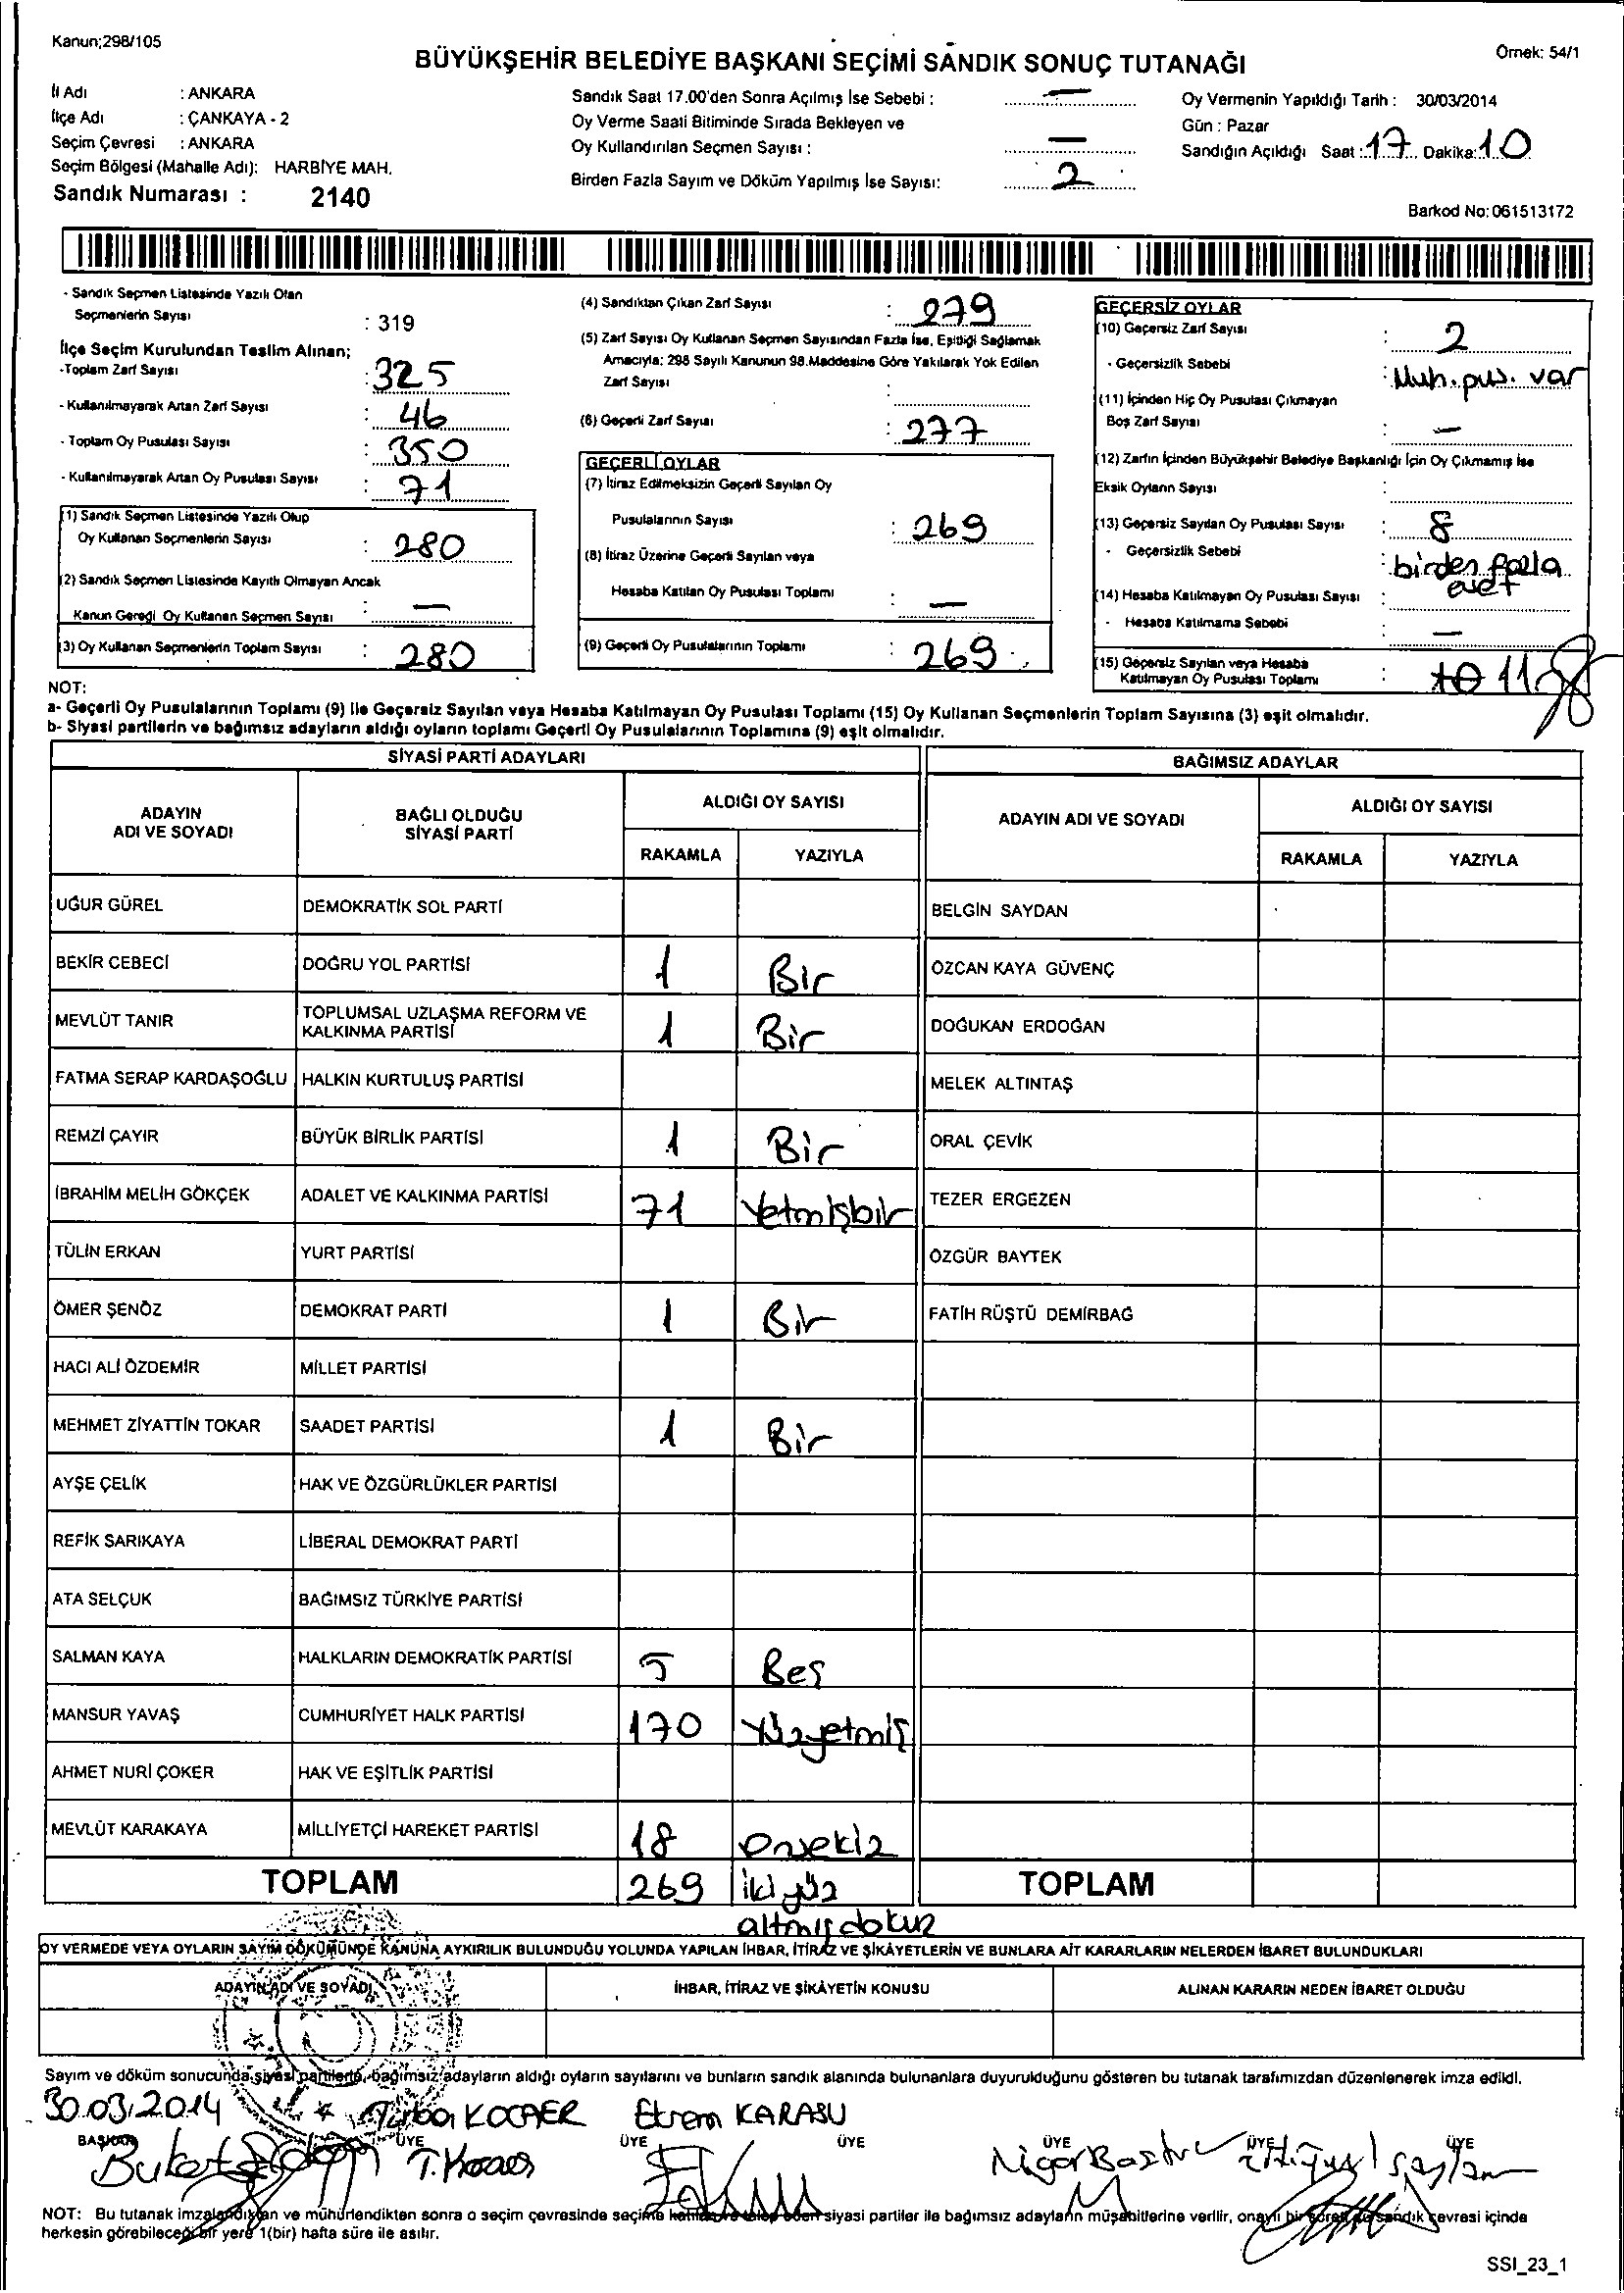 Kanun;298/105
Örnek: 54/1
BÜYÜKŞEHİR BELEDİYE BAŞKANI SEÇİMİ SANDIK SONUÇ TUTANAĞI
İl Adı : ANKARA
İlçe Adı : ÇANKAYA - 2
Seçim Çevresi : ANKARA
Seçim Bölgesi (Mahalle Adı): HARBİYE MAH.
Sandık Numarası : 2140
Sandık Saat 17.00'den Sonra Açılmış İse Sebebi : —
Oy Verme Saati Bitiminde Sırada Bekleyen ve
Oy Kullandırılan Seçmen Sayısı : —
Birden Fazla Sayım ve Döküm Yapılmış İse Sayısı: 2
Oy Vermenin Yapıldığı Tarih : 30/03/2014
Gün : Pazar
Sandığın Açıldığı Saat : 17 Dakika: 10
Barkod No: 061513172
- Sandık Seçmen Listesinde Yazılı Olan
Seçmenlerin Sayısı : 319
İlçe Seçim Kurulundan Teslim Alınan;
-Toplam Zarf Sayısı : 325
- Kullanılmayarak Artan Zarf Sayısı : 46
- Toplam Oy Pusulası Sayısı : 350
- Kullanılmayarak Artan Oy Pusulası Sayısı : 71
(1) Sandık Seçmen Listesinde Yazılı Olup
Oy Kullanan Seçmenlerin Sayısı : 280
(2) Sandık Seçmen Listesinde Kayıtlı Olmayan Ancak
Kanun Gereği Oy Kullanan Seçmen Sayısı : —
(3) Oy Kullanan Seçmenlerin Toplam Sayısı : 280
(4) Sandıktan Çıkan Zarf Sayısı : 279
(5) Zarf Sayısı Oy Kullanan Seçmen Sayısından Fazla İse, Eşitliği Sağlamak
Amacıyla; 298 Sayılı Kanunun 98.Maddesine Göre Yakılarak Yok Edilen
Zarf Sayısı :
(6) Geçerli Zarf Sayısı : 277
GEÇERLİ OYLAR
(7) İtiraz Edilmeksizin Geçerli Sayılan Oy
Pusulalarının Sayısı : 269
(8) İtiraz Üzerine Geçerli Sayılan veya
Hesaba Katılan Oy Pusulası Toplamı : —
(9) Geçerli Oy Pusulalarının Toplamı : 269
GEÇERSİZ OYLAR
(10) Geçersiz Zarf Sayısı : 2
- Geçersizlik Sebebi : Muh. pus. var
(11) İçinden Hiç Oy Pusulası Çıkmayan
Boş Zarf Sayısı : —
(12) Zarfın İçinden Büyükşehir Belediye Başkanlığı İçin Oy Çıkmamış İse
Eksik Oyların Sayısı :
(13) Geçersiz Sayılan Oy Pusulası Sayısı : 8
- Geçersizlik Sebebi : birden fazla
evet
(14) Hesaba Katılmayan Oy Pusulası Sayısı :
- Hesaba Katılmama Sebebi : —
(15) Geçersiz Sayılan veya Hesaba
Katılmayan Oy Pusulası Toplamı : 10 11
NOT:
a- Geçerli Oy Pusulalarının Toplamı (9) İle Geçersiz Sayılan veya Hesaba Katılmayan Oy Pusulası Toplamı (15) Oy Kullanan Seçmenlerin Toplam Sayısına (3) eşit olmalıdır.
b- Siyasi partilerin ve bağımsız adayların aldığı oyların toplamı Geçerli Oy Pusulalarının Toplamına (9) eşit olmalıdır.
SİYASİ PARTİ ADAYLARI
BAĞIMSIZ ADAYLAR
ADAYIN
ADI VE SOYADI
BAĞLI OLDUĞU
SİYASİ PARTİ
ALDIĞI OY SAYISI
ADAYIN ADI VE SOYADI
ALDIĞI OY SAYISI
RAKAMLA YAZIYLA
RAKAMLA YAZIYLA
UĞUR GÜREL DEMOKRATİK SOL PARTİ BELGİN SAYDAN
BEKİR CEBECİ DOĞRU YOL PARTİSİ 1 Bir ÖZCAN KAYA GÜVENÇ
MEVLÜT TANIR TOPLUMSAL UZLAŞMA REFORM VE
KALKINMA PARTİSİ 1 Bir DOĞUKAN ERDOĞAN
FATMA SERAP KARDAŞOĞLU HALKIN KURTULUŞ PARTİSİ MELEK ALTINTAŞ
REMZİ ÇAYIR BÜYÜK BİRLİK PARTİSİ 1 Bir ORAL ÇEVİK
İBRAHİM MELİH GÖKÇEK ADALET VE KALKINMA PARTİSİ 71 Yetmişbir TEZER ERGEZEN
TÜLİN ERKAN YURT PARTİSİ ÖZGÜR BAYTEK
ÖMER ŞENÖZ DEMOKRAT PARTİ 1 Bir FATİH RÜŞTÜ DEMİRBAĞ
HACI ALİ ÖZDEMİR MİLLET PARTİSİ
MEHMET ZİYATTİN TOKAR SAADET PARTİSİ 1 Bir
AYŞE ÇELİK HAK VE ÖZGÜRLÜKLER PARTİSİ
REFİK SARIKAYA LİBERAL DEMOKRAT PARTİ
ATA SELÇUK BAĞIMSIZ TÜRKİYE PARTİSİ
SALMAN KAYA HALKLARIN DEMOKRATİK PARTİSİ 5 Beş
MANSUR YAVAŞ CUMHURİYET HALK PARTİSİ 170 Yüzyetmiş
AHMET NURİ ÇOKER HAK VE EŞİTLİK PARTİSİ
MEVLÜT KARAKAYA MİLLİYETÇİ HAREKET PARTİSİ 18 Onsekiz
TOPLAM 269 İkiyüz
altmışdokuz
TOPLAM
OY VERMEDE VEYA OYLARIN SAYIM DÖKÜMÜNDE KANUNA AYKIRILIK BULUNDUĞU YOLUNDA YAPILAN İHBAR, İTİRAZ VE ŞİKÂYETLERİN VE BUNLARA AİT KARARLARIN NELERDEN İBARET BULUNDUKLARI
ADAYIN ADI VE SOYADI İHBAR, İTİRAZ VE ŞİKÂYETİN KONUSU ALINAN KARARIN NEDEN İBARET OLDUĞU
Sayım ve döküm sonucunda siyasi partilerle, bağımsız adayların aldığı oyların sayılarını ve bunların sandık alanında bulunanlara duyurulduğunu gösteren bu tutanak tarafımızdan düzenlenerek imza edildi.
30.03.2014 KOCAER Ekrem KARASU
BAŞKAN ÜYE ÜYE ÜYE ÜYE ÜYE ÜYE
Buket T. Kocaer Nigar
NOT: Bu tutanak imzalandıktan ve mühürlendikten sonra o seçim çevresinde seçime katılan ve talep eden siyasi partiler ile bağımsız adayların müşahitlerine verilir, onaylı bir sureti de sandık çevresi içinde
herkesin görebileceği bir yere 1(bir) hafta süre ile asılır.
SSI_23_1